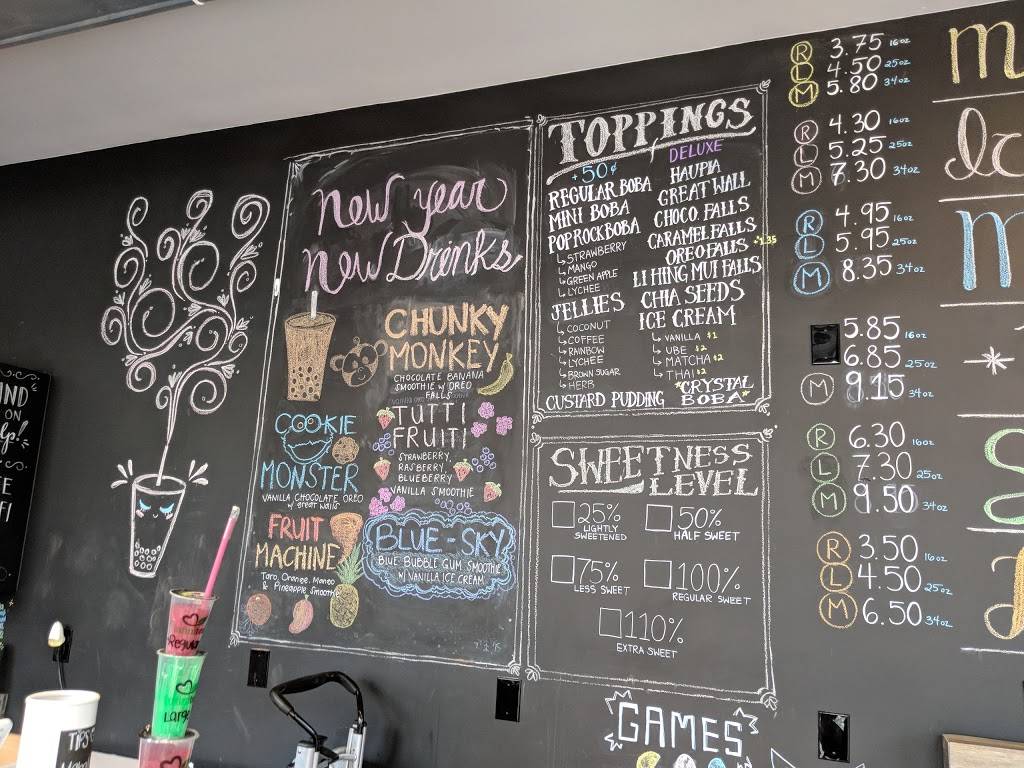 ON
New year
New Drinks
CHUNKY
MONKEY
CHOCOLATE BANANA
SMOOTHIE W/ OREO
FALLS
COOKIE
MONSTER
VANILLA CHOCOLATE OREO
W/ GREAT WALLS
TUTTI
FRUITI
STRAWBERRY,
RASBERRY,
BLUEBERRY
VANILLA SMOOTHIE
FRUIT
MACHINE
Taro, Orange, Mango
& Pineapple Smoothie
BLUE-SKY
BLUE BUBBLE GUM SMOOTHIE
W/ VANILLA ICE CREAM
TOPPINGS
+50¢
REGULAR BOBA
MINI BOBA
POPROCK BOBA
STRAWBERRY
MANGO
GREEN APPLE
LYCHEE
JELLIES
COCONUT
COFFEE
RAINBOW
LYCHEE
BROWN SUGAR
HERB
CUSTARD PUDDING
DELUXE
HAUPIA
GREAT WALL
CHOCO. FALLS
CARAMEL FALLS
OREO FALLS
LI HING MUI FALLS
CHIA SEEDS
ICE CREAM
VANILLA $1
UBE $2
MATCHA $2
THAI $2
*CRYSTAL
BOBA*
SWEETNESS
LEVEL
25%
LIGHTLY
SWEETENED
50%
HALF SWEET
75%
LESS SWEET
100%
REGULAR SWEET
110%
EXTRA SWEET
GAMES
R 3.75 16oz
L 4.50 25oz
M 5.80 34oz
R 4.30 16oz
L 5.25 25oz
M 7.30 34oz
R 4.95 16oz
L 5.95 25oz
M 8.35 34oz
5.85 16oz
6.85 25oz
M 9.15 34oz
R 6.30 16oz
L 7.30 25oz
M 9.50 34oz
R 3.50 16oz
L 4.50 25oz
M 6.50 34oz
Regular
Large
TIPS